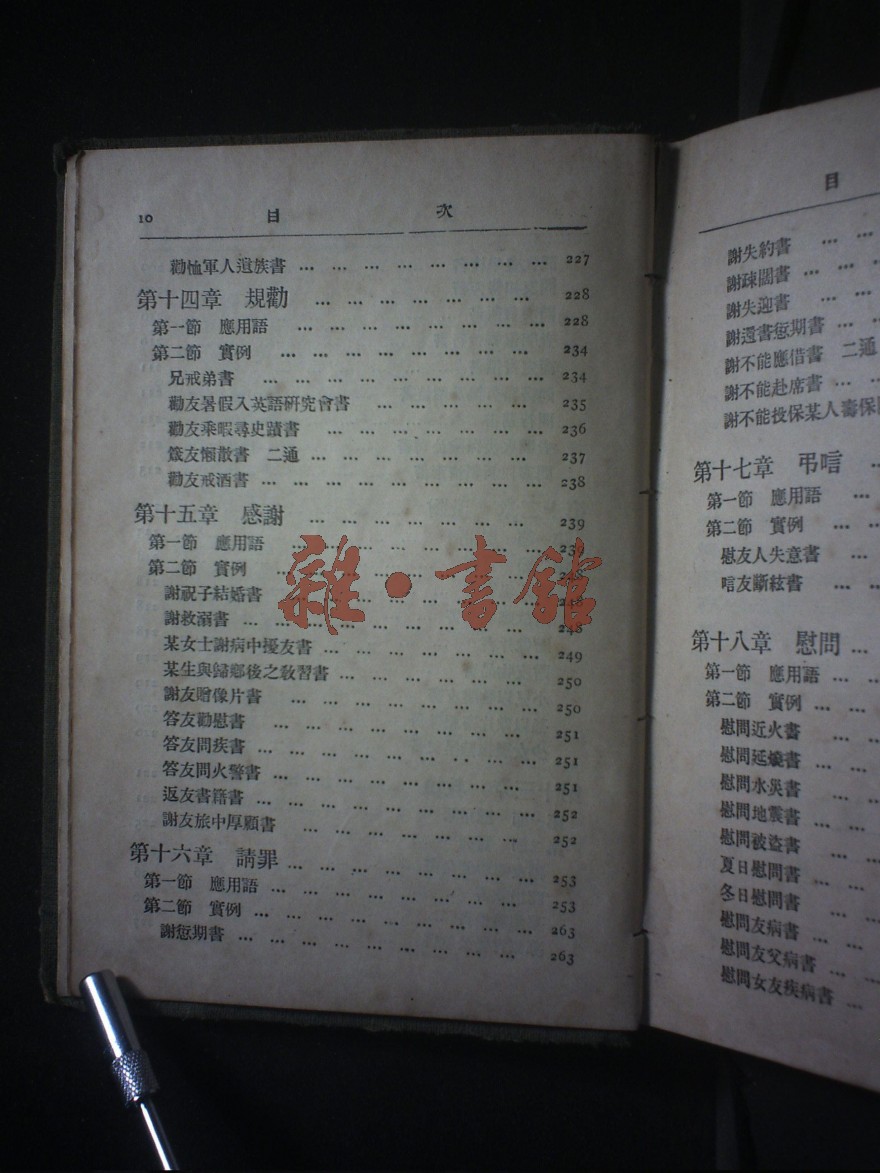 10 目 次
勸恤軍人遺族書 … … … … … … … … 227
第十四章 規勸 … … … … … … … 228
第一節 應用語 … … … … … … … 228
第二節 實例 … … … … … … … … 234
兄戒弟書 … … … … … … … … 234
勸友暑假入英語研究會書 … … … … … 235
勸友乘暇尋史蹟書 … … … … … … … 236
箴友懶散書 二通 … … … … … … … 237
勸友戒酒書 … … … … … … … … … 238
第十五章 感謝 … … … … … … … 239
第一節 應用語 … … … … … … …
第二節 實例 … … … … … … … …
謝祝子結婚書 … … … … … … …
謝救溺書 … … … … … … … … 248
某女士謝病中擾友書 … … … … … … … 249
某生與歸鄉後之教習書 … … … … … … 250
謝友贈像片書 … … … … … … … … 250
答友勸慰書 … … … … … … … … 251
答友問疾書 … … … … … … … … 251
答友問火警書 … … … … … … … … 251
返友書籍書 … … … … … … … … … 252
謝友旅中厚顧書 … … … … … … … … 252
第十六章 請罪 … … … … … … … … 253
第一節 應用語 … … … … … … … … 253
第二節 實例 … … … … … … … … … 263
謝愆期書 … … … … … … … … … 263
雜·書館
目
謝失約書 … …
謝疎闊書 … … …
謝失迎書 … …
謝還書愆期書 … …
謝不能應借書 二通
謝不能赴席書 … …
謝不能投保某人審保
第十七章 弔唁 …
第一節 應用語 …
第二節 實例 … …
慰友人失意書 …
唁友斷絃書 … …
第十八章 慰問 …
第一節 應用語 …
第二節 實例 … …
慰問近火書 …
慰問延燒書 … …
慰問水災書 … …
慰問地震書 … …
慰問被盜書 …
夏日慰問書 …
冬日慰問書
慰問友病書 …
慰問友父病書 …
慰問女友疾病書 …